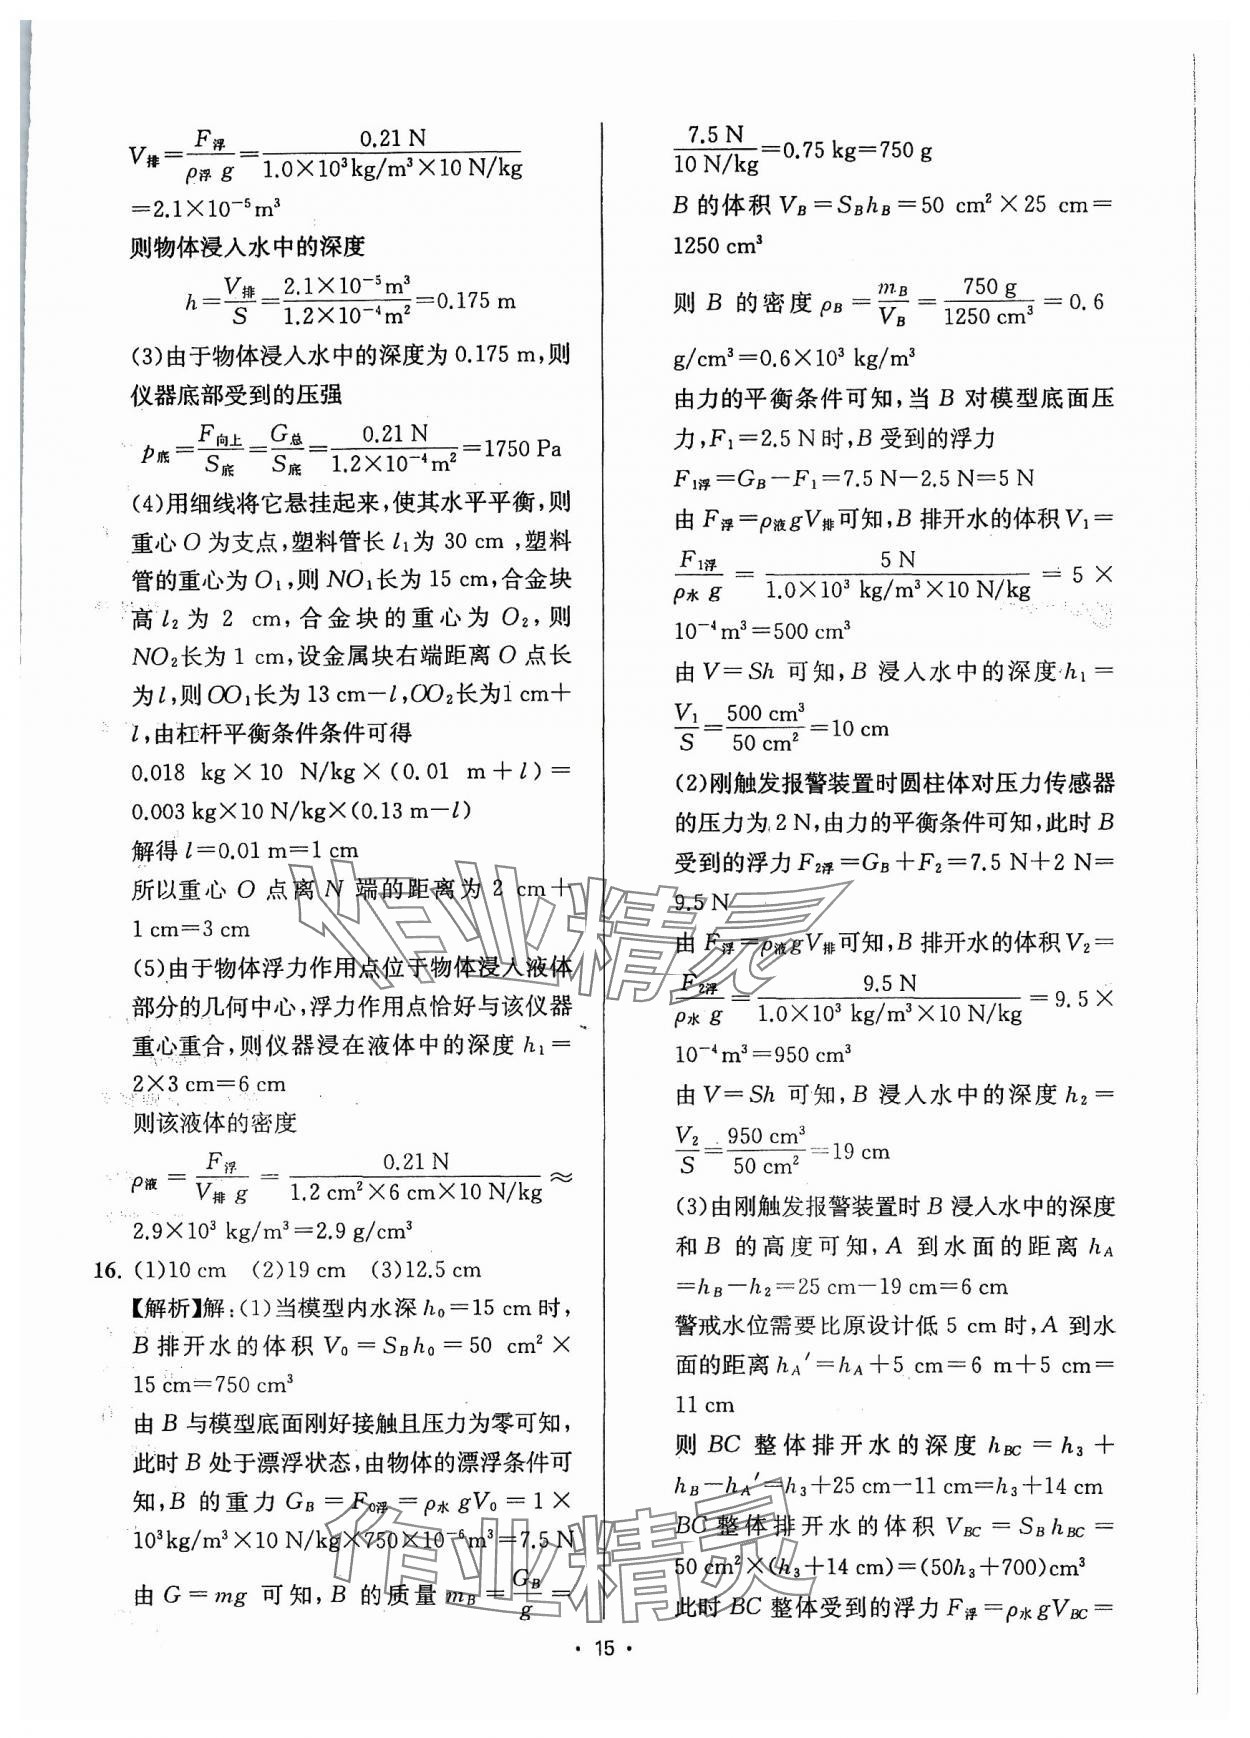 V排=F浮/ρ浮 g=0.21 N/1.0×10³kg/m³×10 N/kg
=2.1×10⁻⁵m³
则物体浸入水中的深度
h=V排/S=2.1×10⁻⁵m³/1.2×10⁻⁴m²=0.175 m
(3)由于物体浸入水中的深度为 0.175 m,则
仪器底部受到的压强
p底=F向上/S底=G总/S底=0.21 N/1.2×10⁻⁴m²=1750 Pa
(4)用细线将它悬挂起来,使其水平平衡,则
重心 O 为支点,塑料管长 l₁为 30 cm ,塑料
管的重心为 O₁,则 NO₁长为 15 cm,合金块
高 l₂ 为 2 cm,合金块的重心为 O₂,则
NO₂长为 1 cm,设金属块右端距离 O 点长
为 l,则 OO₁长为 13 cm-l,OO₂长为1 cm+
l,由杠杆平衡条件条件可得
0.018 kg×10 N/kg×(0.01 m+l)=
0.003 kg×10 N/kg×(0.13 m-l)
解得 l=0.01 m=1 cm
所以重心 O 点离 N 端的距离为 2 cm+
1 cm=3 cm
(5)由于物体浮力作用点位于物体浸入液体
部分的几何中心,浮力作用点恰好与该仪器
重心重合,则仪器浸在液体中的深度 h₁=
2×3 cm=6 cm
则该液体的密度
ρ液=F浮/V排 g=0.21 N/1.2 cm²×6 cm×10 N/kg≈
2.9×10³ kg/m³=2.9 g/cm³
16. (1)10 cm (2)19 cm (3)12.5 cm
【解析】解:(1)当模型内水深 h₀=15 cm 时,
B 排开水的体积 V₀=S_B h₀=50 cm²×
15 cm=750 cm³
由 B 与模型底面刚好接触且压力为零可知,
此时 B 处于漂浮状态,由物体的漂浮条件可
知,B 的重力 G_B=F₀浮=ρ水 gV₀=1×
10³kg/m³×10 N/kg×750×10⁻⁶m³=7.5 N
由 G=mg 可知,B 的质量 m_B=G_B/g=
7.5 N/10 N/kg=0.75 kg=750 g
B 的体积 V_B=S_B h_B=50 cm²×25 cm=
1250 cm³
则 B 的密度 ρ_B=m_B/V_B=750 g/1250 cm³=0.6
g/cm³=0.6×10³ kg/m³
由力的平衡条件可知,当 B 对模型底面压
力,F₁=2.5 N时,B 受到的浮力
F₁浮=G_B-F₁=7.5 N-2.5 N=5 N
由 F浮=ρ液gV排可知,B 排开水的体积 V₁=
F₁浮/ρ水 g=5 N/1.0×10³ kg/m³×10 N/kg=5×
10⁻⁴m³=500 cm³
由 V=Sh 可知,B 浸入水中的深度 h₁=
V₁/S=500 cm³/50 cm²=10 cm
(2)刚触发报警装置时圆柱体对压力传感器
的压力为 2 N,由力的平衡条件可知,此时 B
受到的浮力 F₂浮=G_B+F₂=7.5 N+2 N=
9.5 N
由 F浮=ρ液gV排可知,B 排开水的体积 V₂=
F₂浮/ρ水 g=9.5 N/1.0×10³ kg/m³×10 N/kg=9.5×
10⁻⁴m³=950 cm³
由 V=Sh 可知,B 浸入水中的深度 h₂=
V₂/S=950 cm³/50 cm²=19 cm
(3)由刚触发报警装置时 B 浸入水中的深度
和 B 的高度可知,A 到水面的距离 h_A
=h_B-h₂=25 cm-19 cm=6 cm
警戒水位需要比原设计低 5 cm时,A 到水
面的距离 h_A′=h_A+5 cm=6 m+5 cm=
11 cm
则 BC 整体排开水的深度 h_BC=h₃+
h_B-h_A′=h₃+25 cm-11 cm=h₃+14 cm
BC 整体排开水的体积 V_BC=S_B h_BC=
50 cm²×(h₃+14 cm)=(50h₃+700)cm³
此时 BC 整体受到的浮力 F浮=ρ水 gV_BC=
· 15 ·
作业精灵
作业精灵